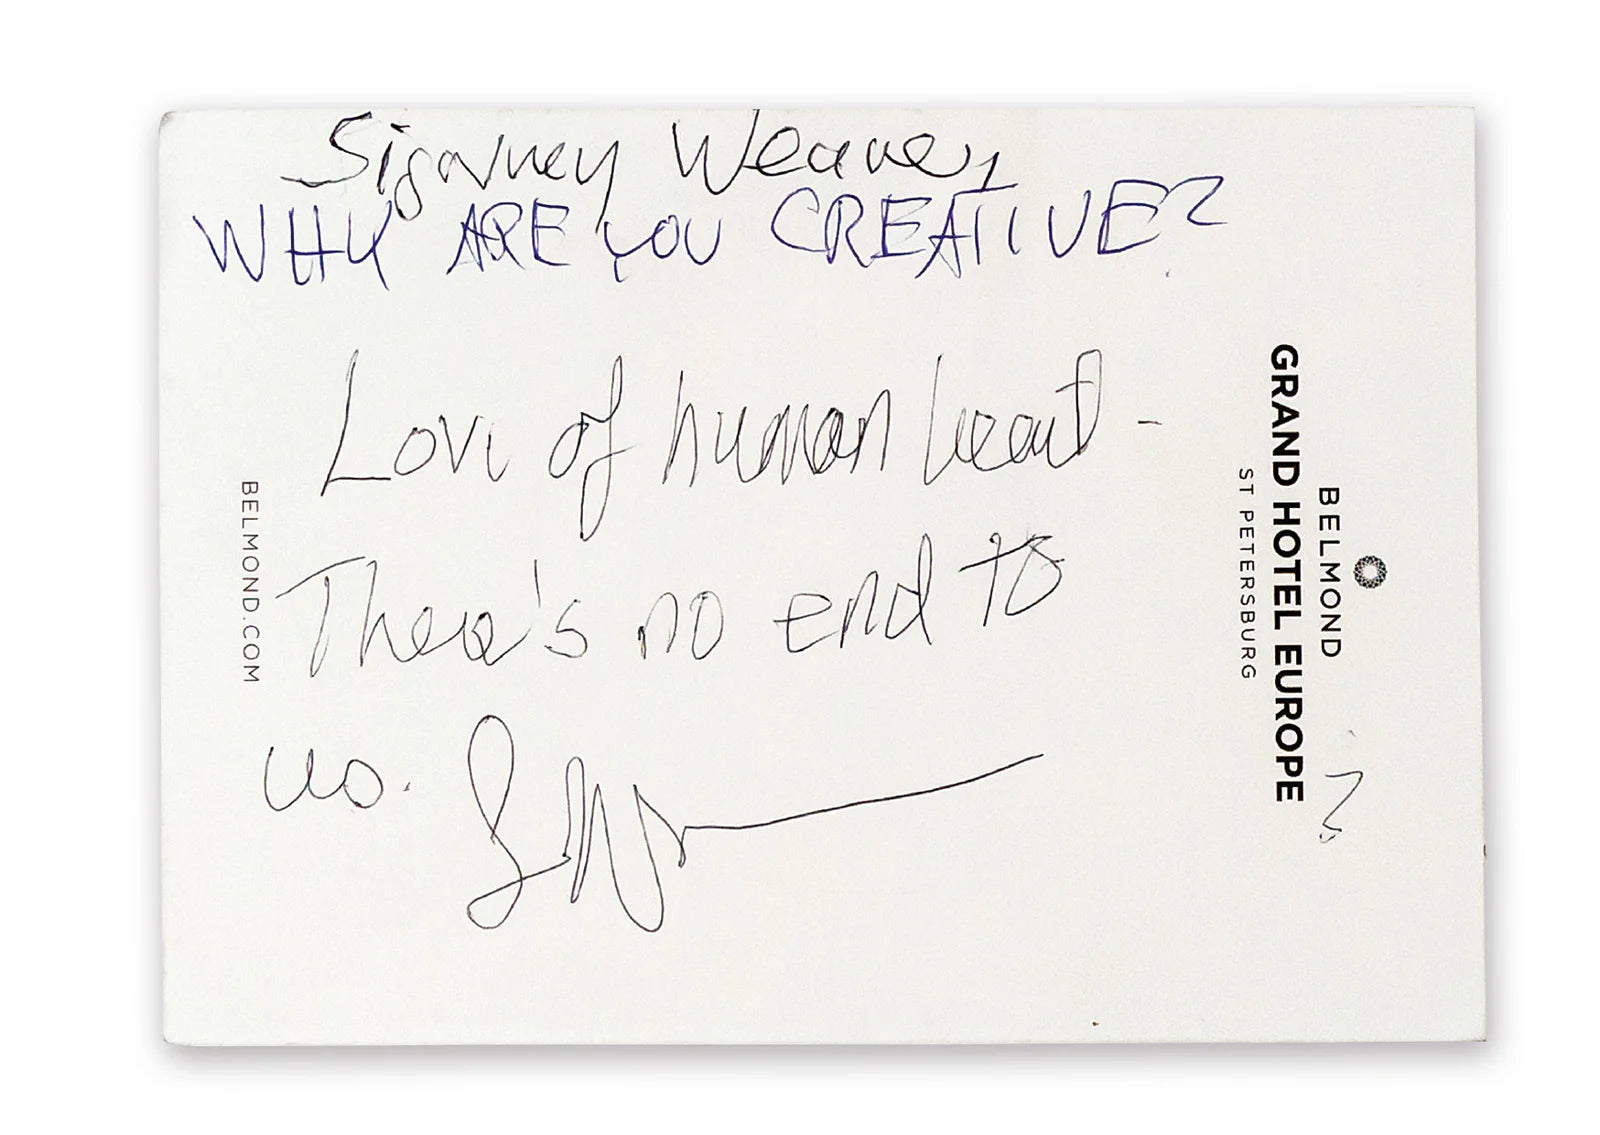 Sigourney Weaver
WHY ARE YOU CREATIVE?
Love of human heart -
There's no end to
us.
BELMOND
GRAND HOTEL EUROPE
ST PETERSBURG
BELMOND.COM